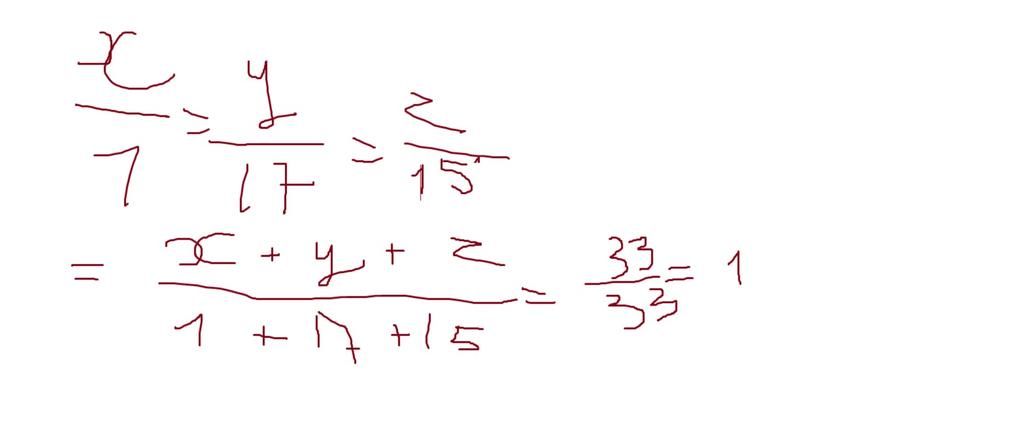 x/1 = y/17 = z/15
= (x + y + z)/(1 + 17 + 15) = 33/33 = 1